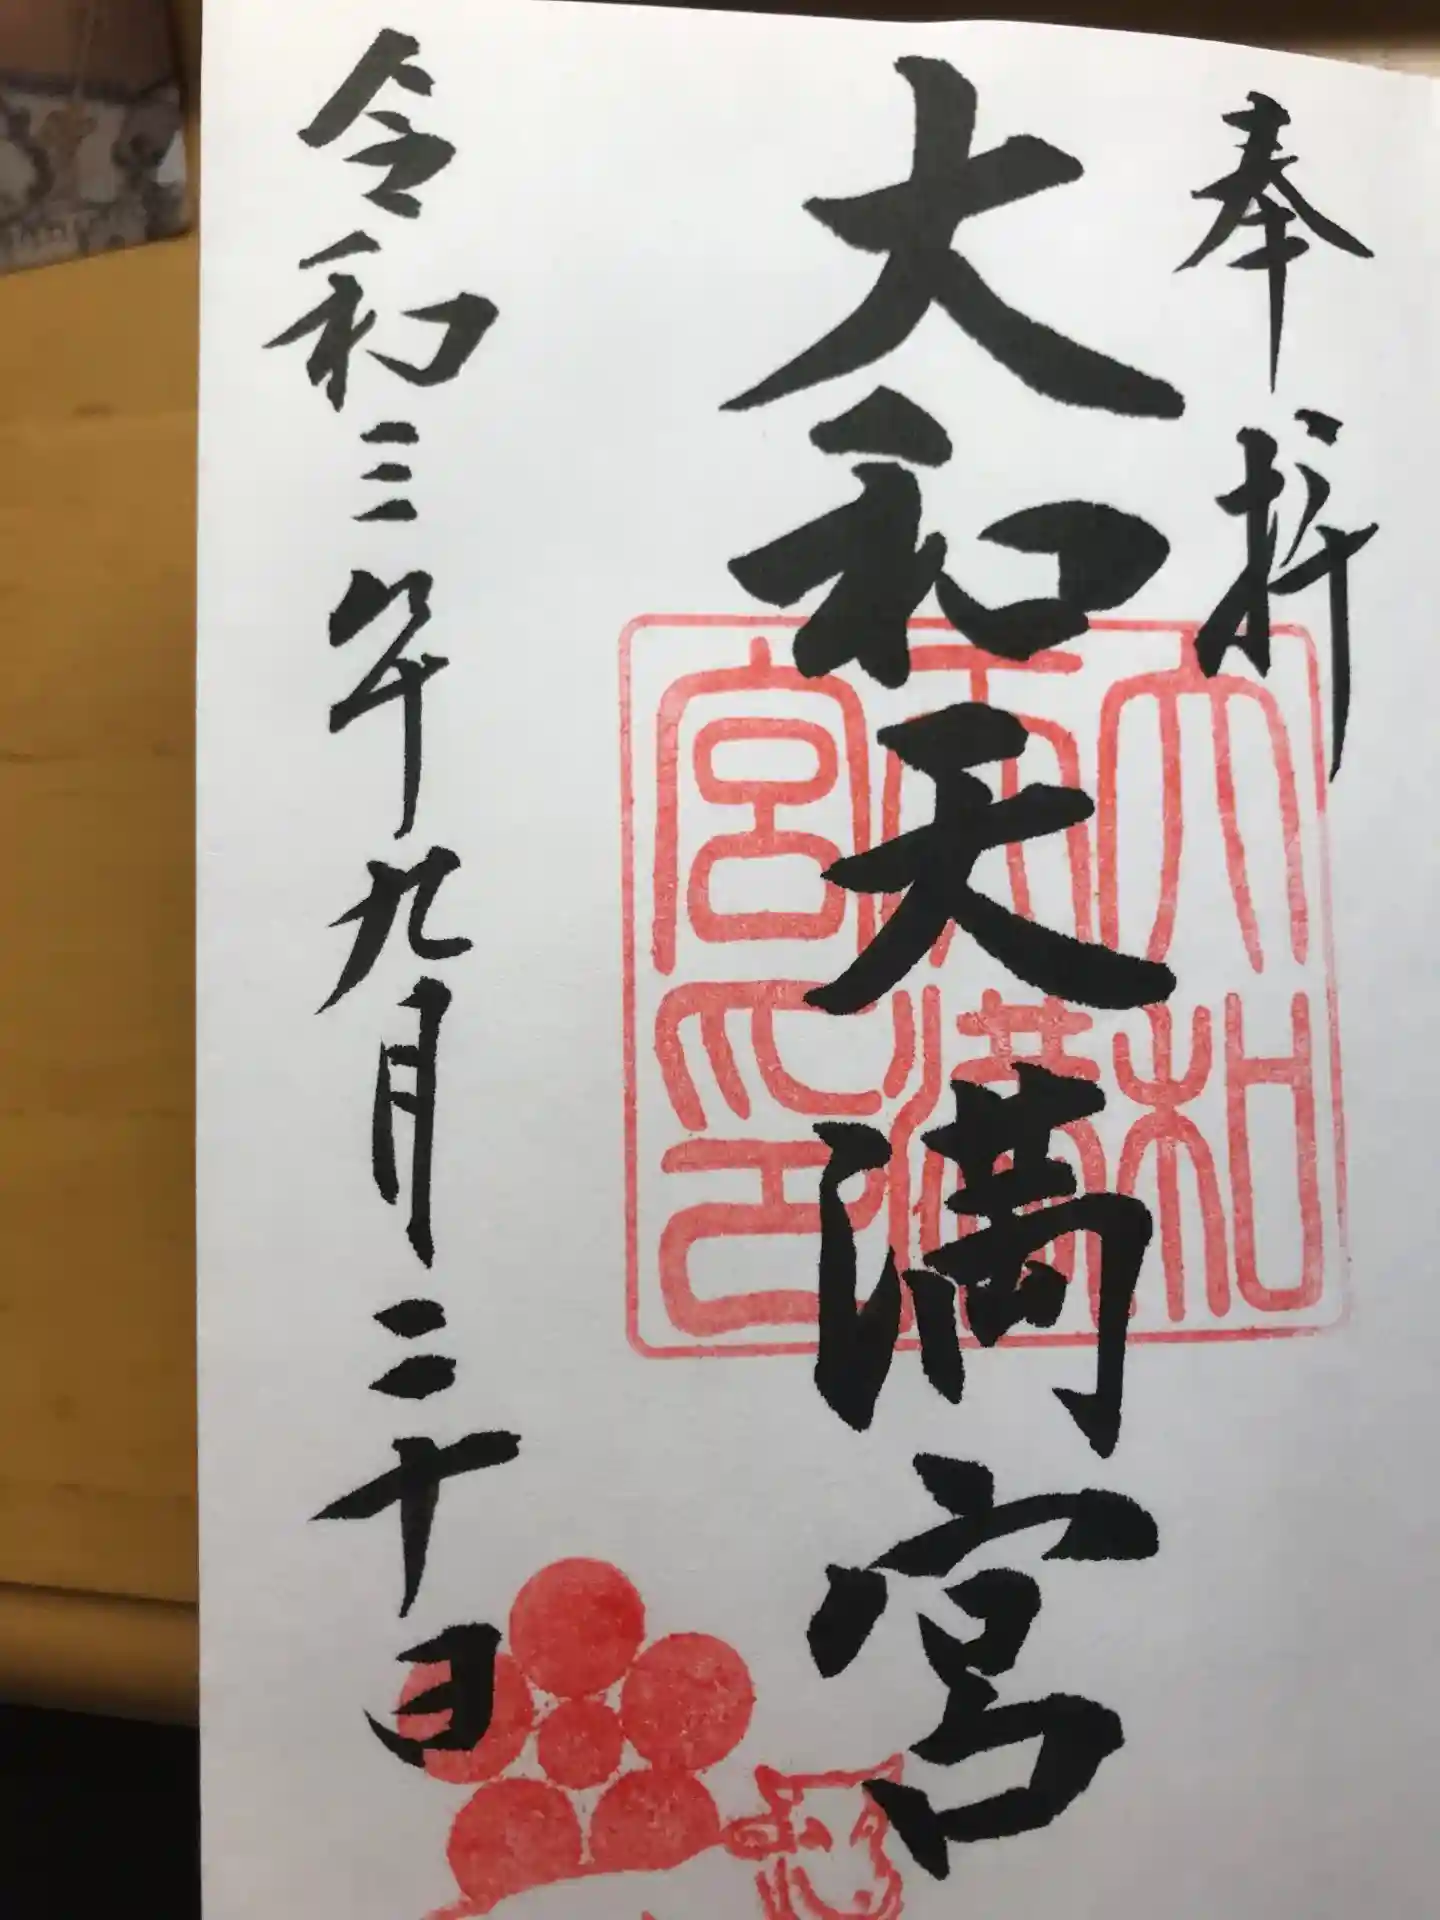 奉拝
大和天満宮
大和
天満
宮印
令和三年九月二十日